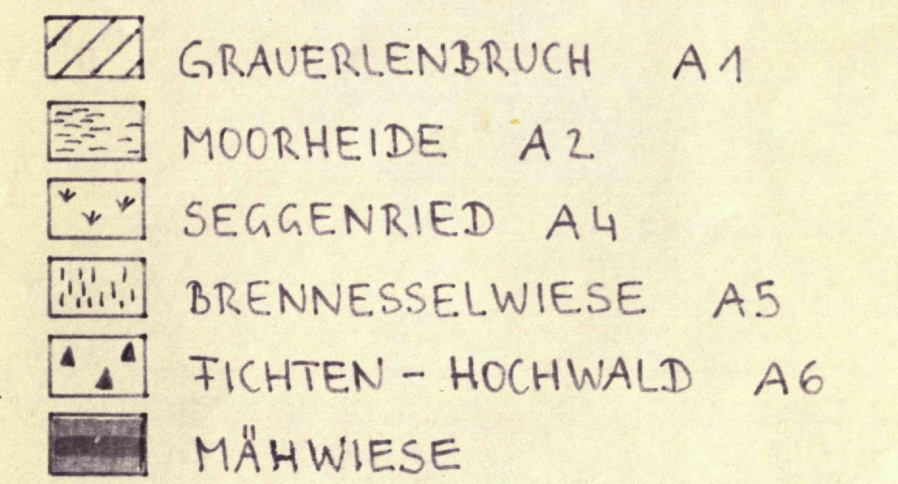 GRAUERLENBRUCH A1
MOORHEIDE A2
SEGGENRIED A4
BRENNESSELWIESE A5
FICHTEN - HOCHWALD A6
MÄHWIESE